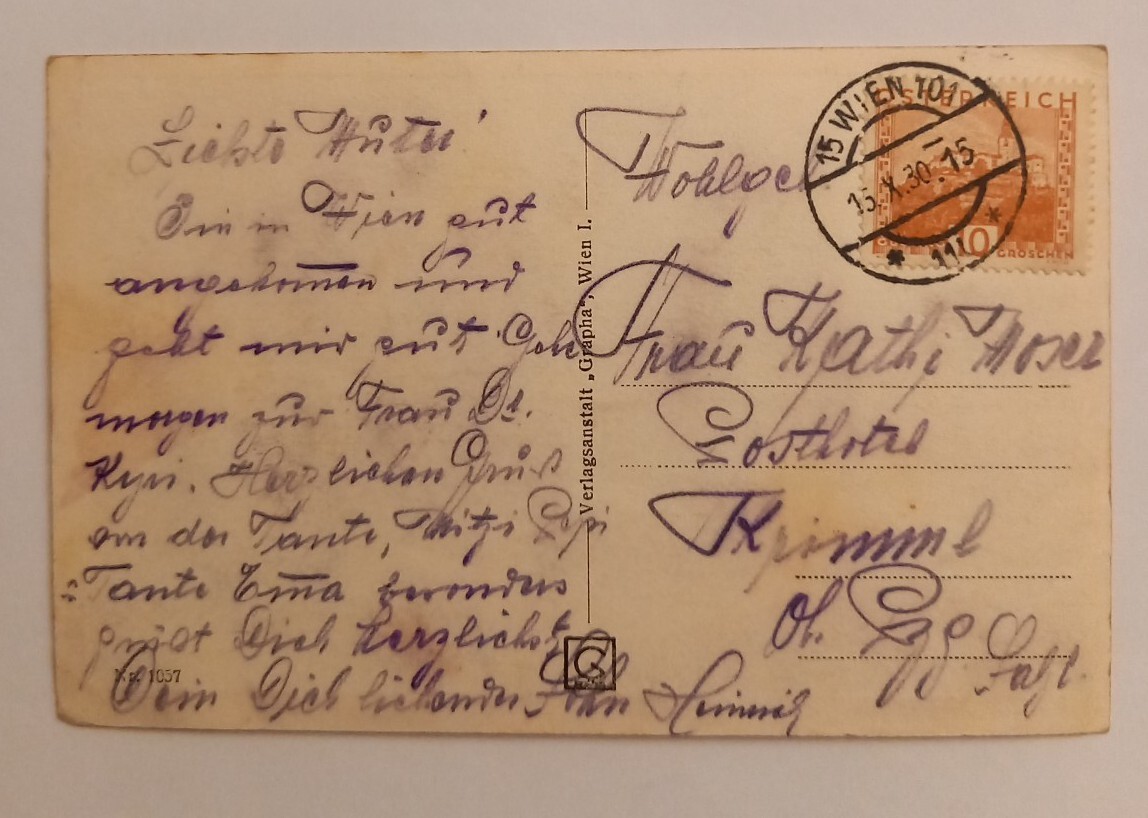 Liebste Mutter!
Bin in Wien gut
angekommen und
geht mir gut Gehe
morgen zur Frau Dr.
Herzlichen Gruß
von der Tante, Mitzi Pepi
Tante Emma besonders
grüßt Dich herzlichst
Dein Dich liebender Sohn Heinrich
Nr. 1057
Verlagsanstalt „Grapha“, Wien I.
G
15 WIEN 101
15.X.30.15
* 111 *
ÖSTERREICH
10
GROSCHEN
Wohlgeb
Frau Kathi Moser
Posthotel
Krimml
Ob. Pzg